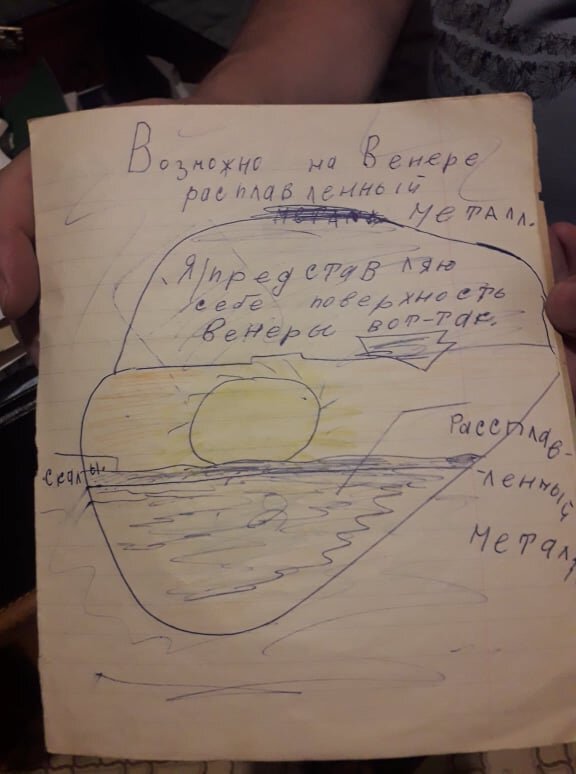 Возможно на Венере
расплавленный
металл.
Я представляю
себе поверхность
венеры вот-так.
Скалы.
Рассплав-
-ленный
металл